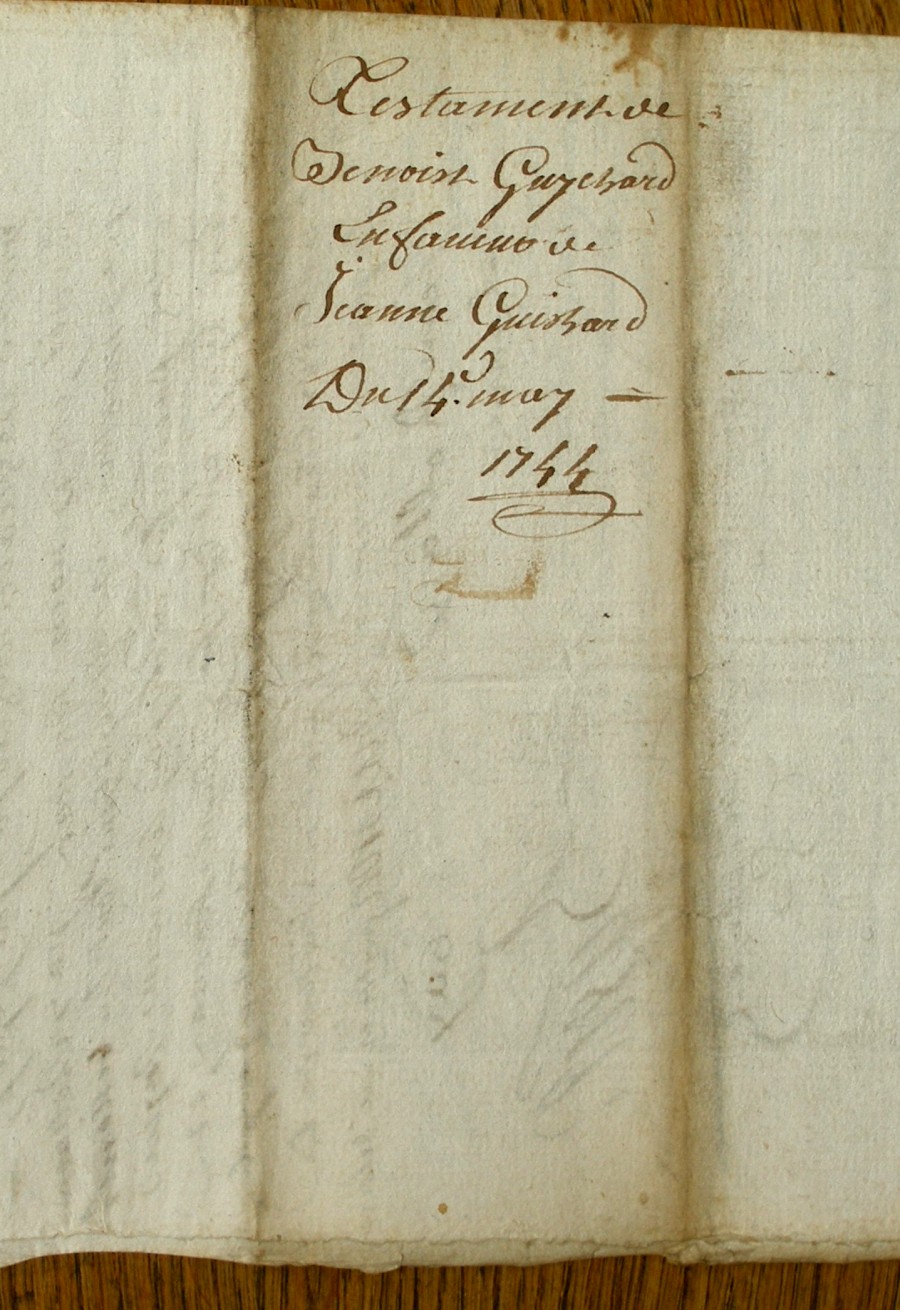 Testament de
Benoist Guychard
En faueur de
Jeanne Guichard
Du 14e. may =
1744